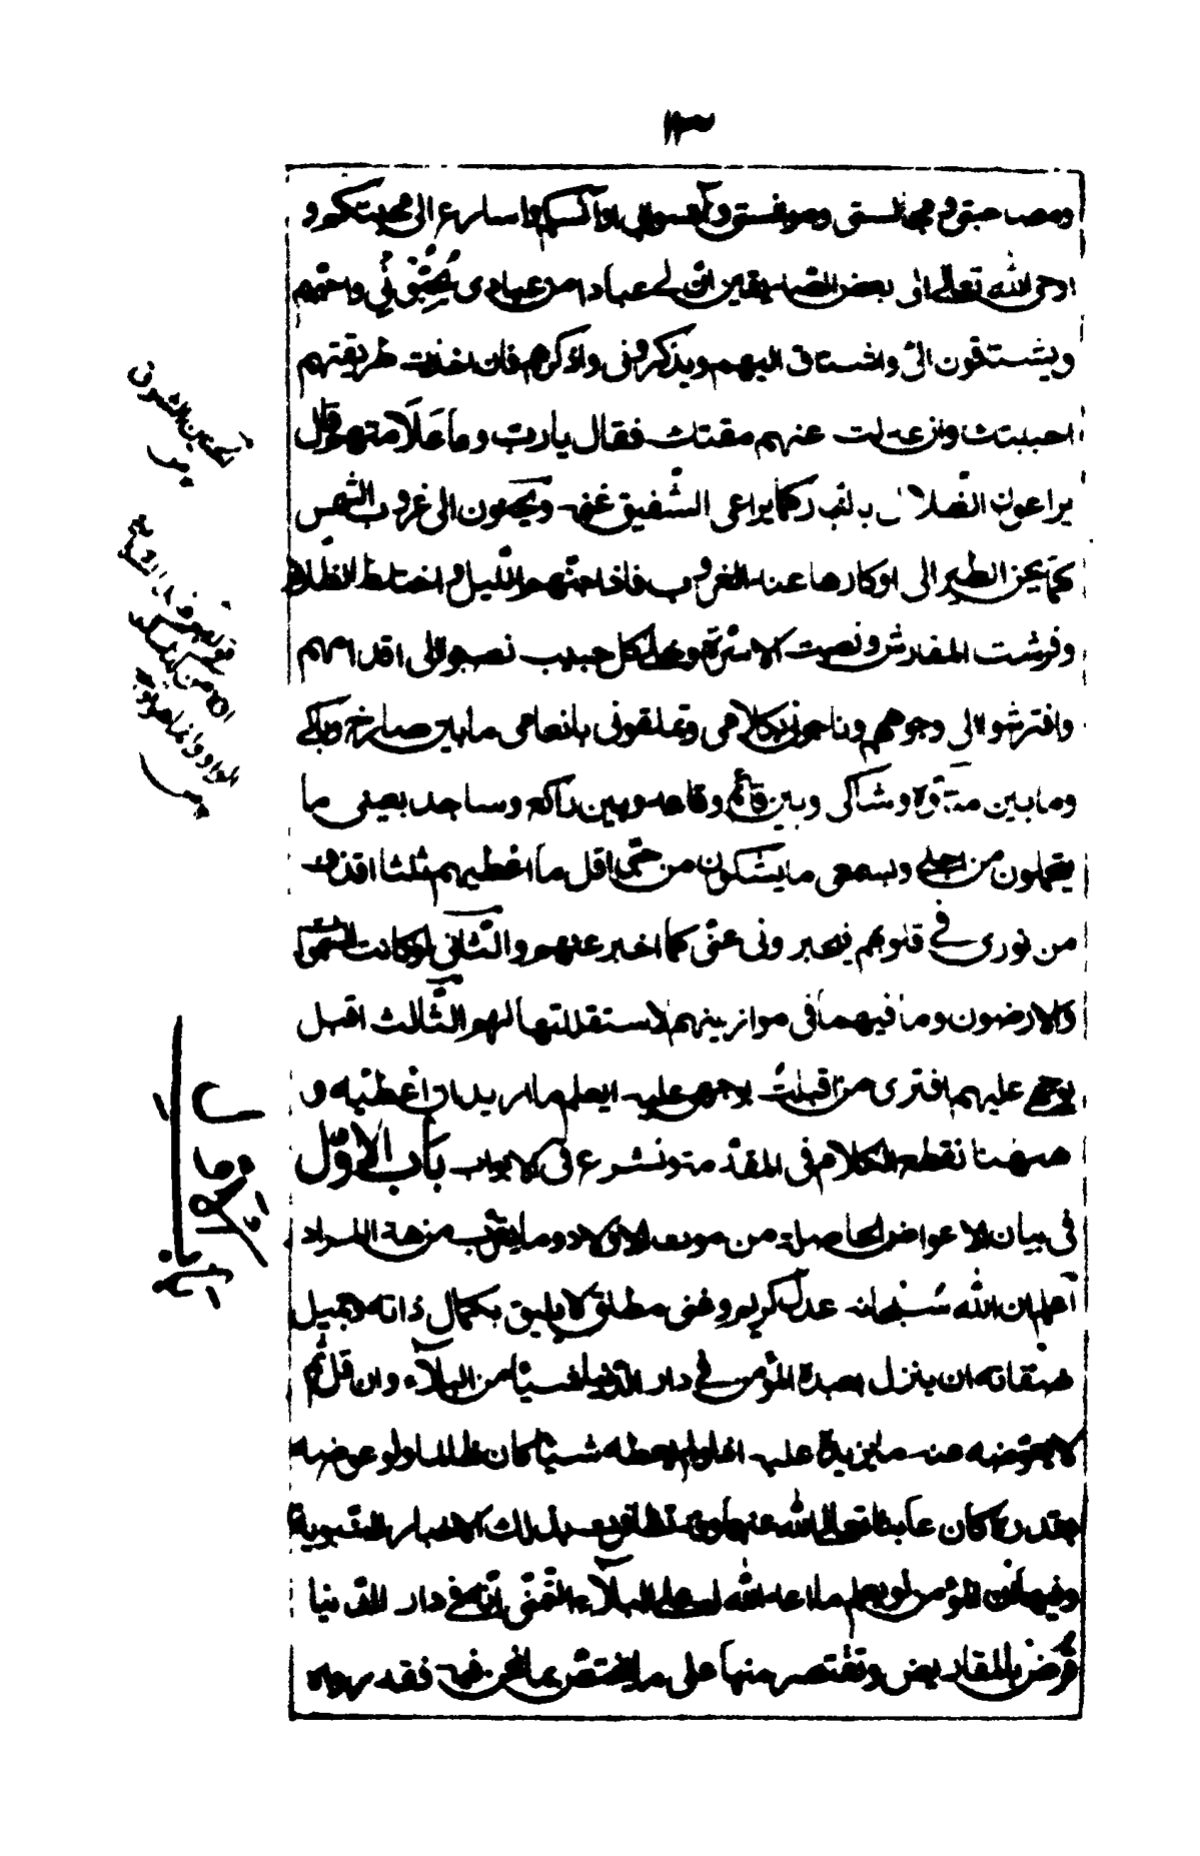 ١٣
ومصاحبتي ومجالستي وموانستي وآنسوا بي اوآنسكم واسارع الى محبتكم و
اوحى الله تعالى الى بعض الصديقين ان لي عبادا من عبادي يُحِبُّوني واحبهم
ويشتاقون اليّ واشتاق اليهم ويذكروني واذكرهم فان اخذت طريقتهم
احببتك وان عدلت عنهم مقتك فقال يا رب وما عَلَامتهم قال
يراعون الضلال بالنهار كما يراعى الشفيق غنمه ويحنون الى غروب الشمس
كما يحن الطير الى اوكارها عند الغروب فاذا جنهم الليل واختلط الظلام
وفرشت المفارش ونصبت الاسرة وخلا كل حبيب نصبوا الى اقدامهم
وافترشوا لي وجوههم وناجوني بكلامي وتملقوني بانعامي ما بين صارخ وباكي
وما بين متأوه وشاكي وبين قائم وقاعد وبين راكع وساجد بعيني ما
يتحملون من اجلي وبسمعي ما يشكون من حبي اقل ما اعطيهم ثلثا اقذف
من نوري في قلوبهم فيخبروني عني كما اخبر عنهم والثاني لو كانت السموات
والارضون وما فيهما في موازينهم لاستقللتها لهم والثالث اقبل
بوجهي عليهم افترى من اقبلت بوجهي عليه ايعلم ما اريد ان اعطيه و
ههنا نقطع الكلام في المقدمة ونشرع في الابواب باب الاوّل
في بيان الاعواض الحاصلة من موت الاولاد وما يقرب من هذا المراد
اعلم ان الله سُبْحانه عدل كريم وغني مطلق لا يليق بكمال ذاته وجميل
صفاته ان ينزل بعبده المؤمن في دار الدنيا شيئا من البلاء وان قل ثم
لا يعوضه عنه ما يزيد عليه اذ لو لم يعطه شيئا كان ظالما ولو عوضه
بقدره كان عابثا تعالى الله عنهما وقد تظافرت بذلك الاخبار النبوية
وفيها ان المؤمن لو يعلم ما اعد الله له على البلاء لتمنى انه في دار الدنيا
قُرض بالمقاريض ونقتصر منها على ما يختص بما نحن فيه فقد رواه